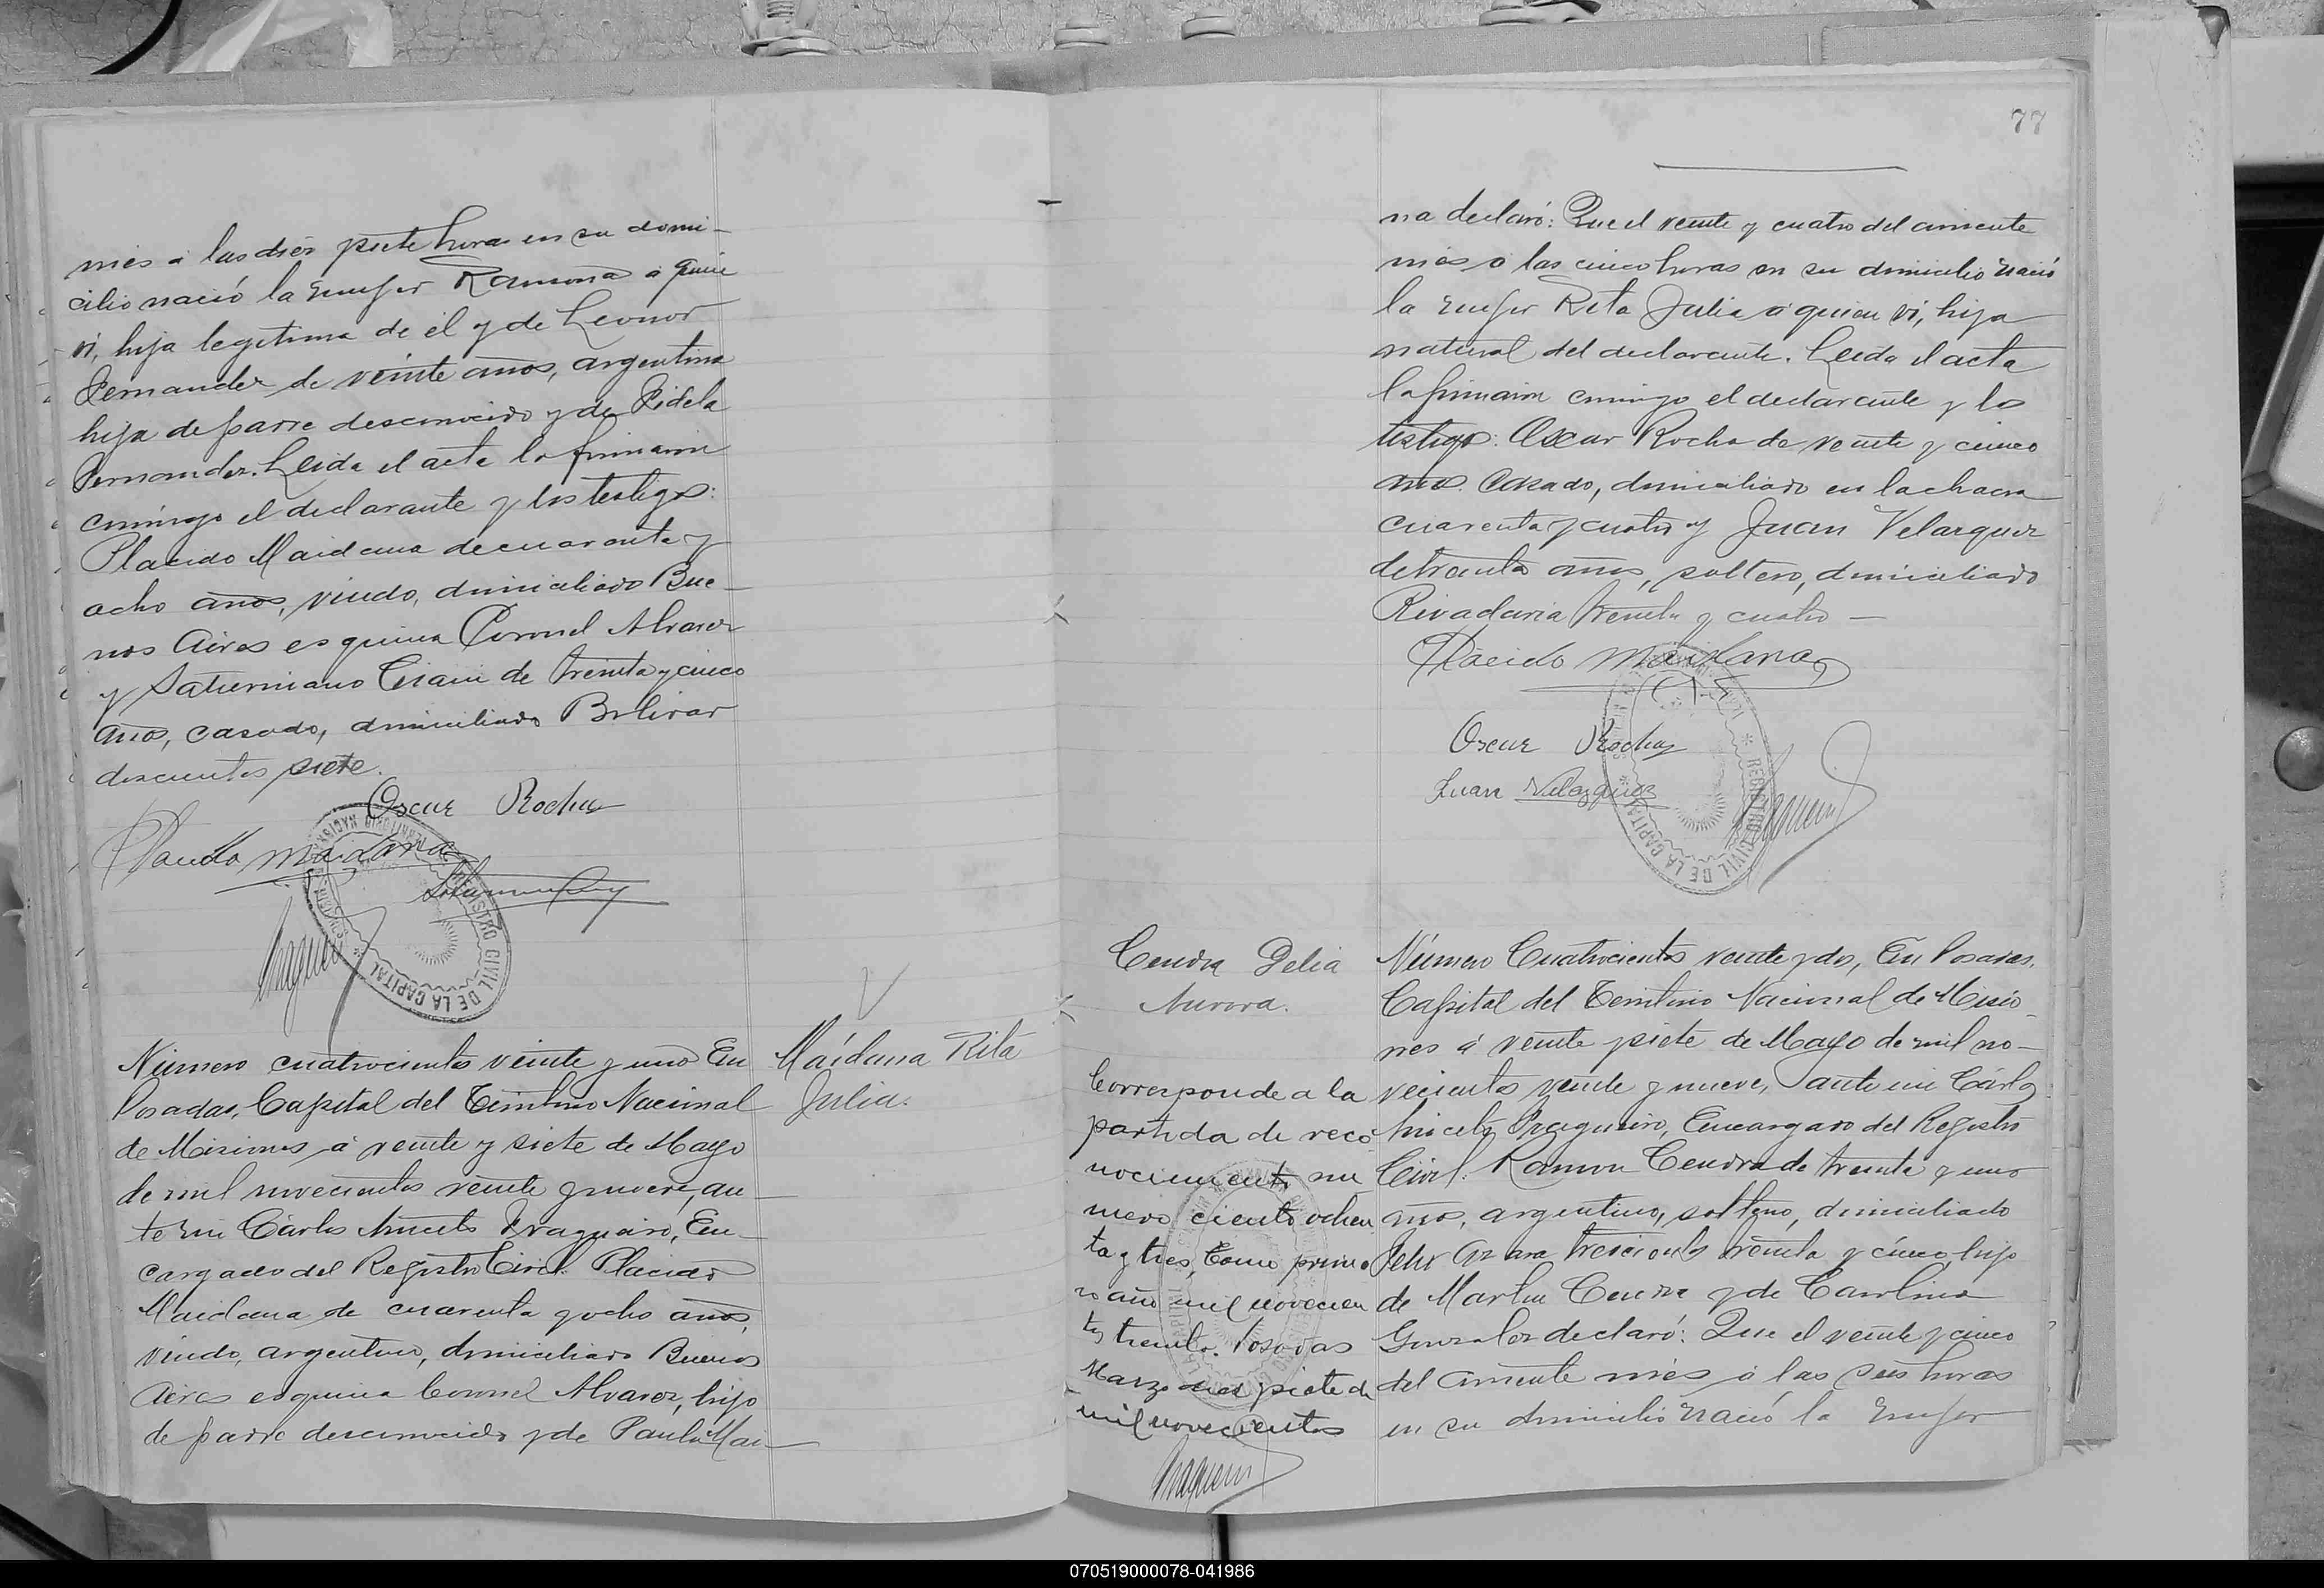 mes á las diez y siete horas en su domi-
cilio nació la mujer Ramona á quien
vi, hija legitima de él y de Leonor
Fernandez de veinte años, argentina
hija de padre desconocido y de Fidela
Fernandez. Leida el acta la firmaron
conmigo el declarante y los testigos:
Placido Maidana de cuarenta y
ocho años, viudo, domiciliado Bue-
nos Aires esquina Coronel Alvarez
y Saturniano de treinta y cinco
años, casado, domiciliado Bolivar
doscientos siete.
Oscar Rocha
Placido Maidana
REGISTRO CIVIL DE LA CAPITAL
Número cuatrocientos veinte y uno En
Posadas, Capital del Territorio Nacional
de Misiones á veinte y siete de Mayo
de mil novecientos veinte y nueve, an-
te mi Cárlos Aniceto Fragueiro, En-
cargado del Registro Civil. Placido
Maidana de cuarenta y ocho años,
viudo, argentino, domiciliado Buenos
Aires esquina Coronel Alvarez, hijo
de padre desconocido y de Paula Mai-
Maídana Rita
Julia.
77
na declaró: Que el veinte y cuatro del corriente
mes á las cinco horas en su domicilio nació
la mujer Rita Julia á quien vi, hija
natural del declarante. Leida el acta
la firmaron conmigo el declarante y los
testigos: Oscar Rocha de veinte y cinco
años. Casado, domiciliado en la chacra
cuarenta y cuatro y Juan Velazquez
de treinta años, soltero, domiciliado
Rivadavia treinta y cuatro —
Placido Maidana
Oscar Rocha
Juan Velazquez
REGISTRO CIVIL DE LA CAPITAL
Cendra Delia
Aurora.
Corresponde a la
partida de reco
nocimiento nu
mero ciento ochen
ta y tres, tomo prime
ro año mil novecien
tos treinta. Posadas
Marzo diez y siete de
mil novecientos
Número Cuatrocientos veinte y dos, En Posadas,
Capital del Territorio Nacional de Misio-
nes á veinte y siete de Mayo de mil no-
vecientos veinte y nueve, ante mi Cárlos
Aniceto Fragueiro, Encargado del Registro
Civil. Ramon Cendra de treinta y uno
años, argentino, soltero, domiciliado
Felix Azara trescientos treinta y cinco, hijo
de Martin Cendra y de Carolina
Gonzalez declaró: Que el veinte y cinco
del corriente mes á las seis horas
en su domicilio nació la mujer
070519000078-041986